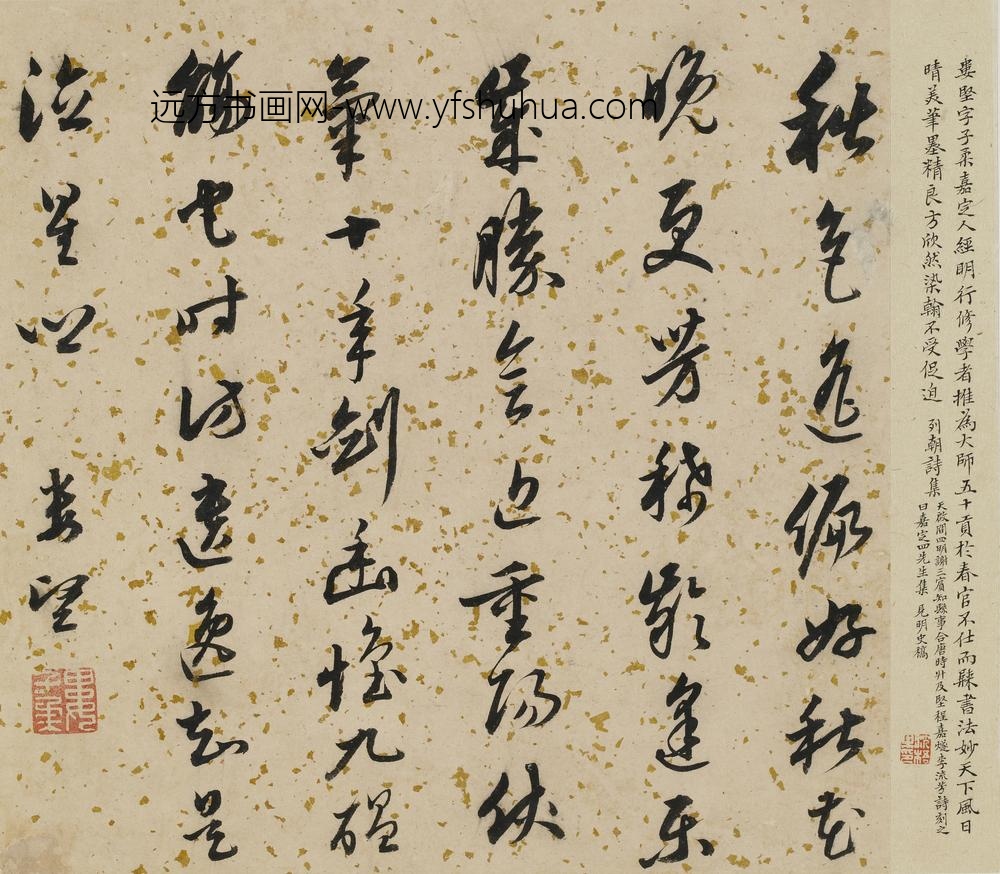 婁堅字子柔嘉定人經明行修學者推為大師五十貢於春官不仕而歸書法妙天下風日
晴美筆墨精良方欣然染翰不受促迫 列朝詩集 天啟間四明謝三賓知縣事合唐時升及堅程嘉燧李流芳詩刻之
曰嘉定四先生集 見明史稿
秋色偏好秋花
晚更芳稀齡逢樂
歲勝會近重陽伏
氣十年劍九醖
觴它時訪遺逸知是
星 婁堅
远方书画网-www.yfshuhua.com